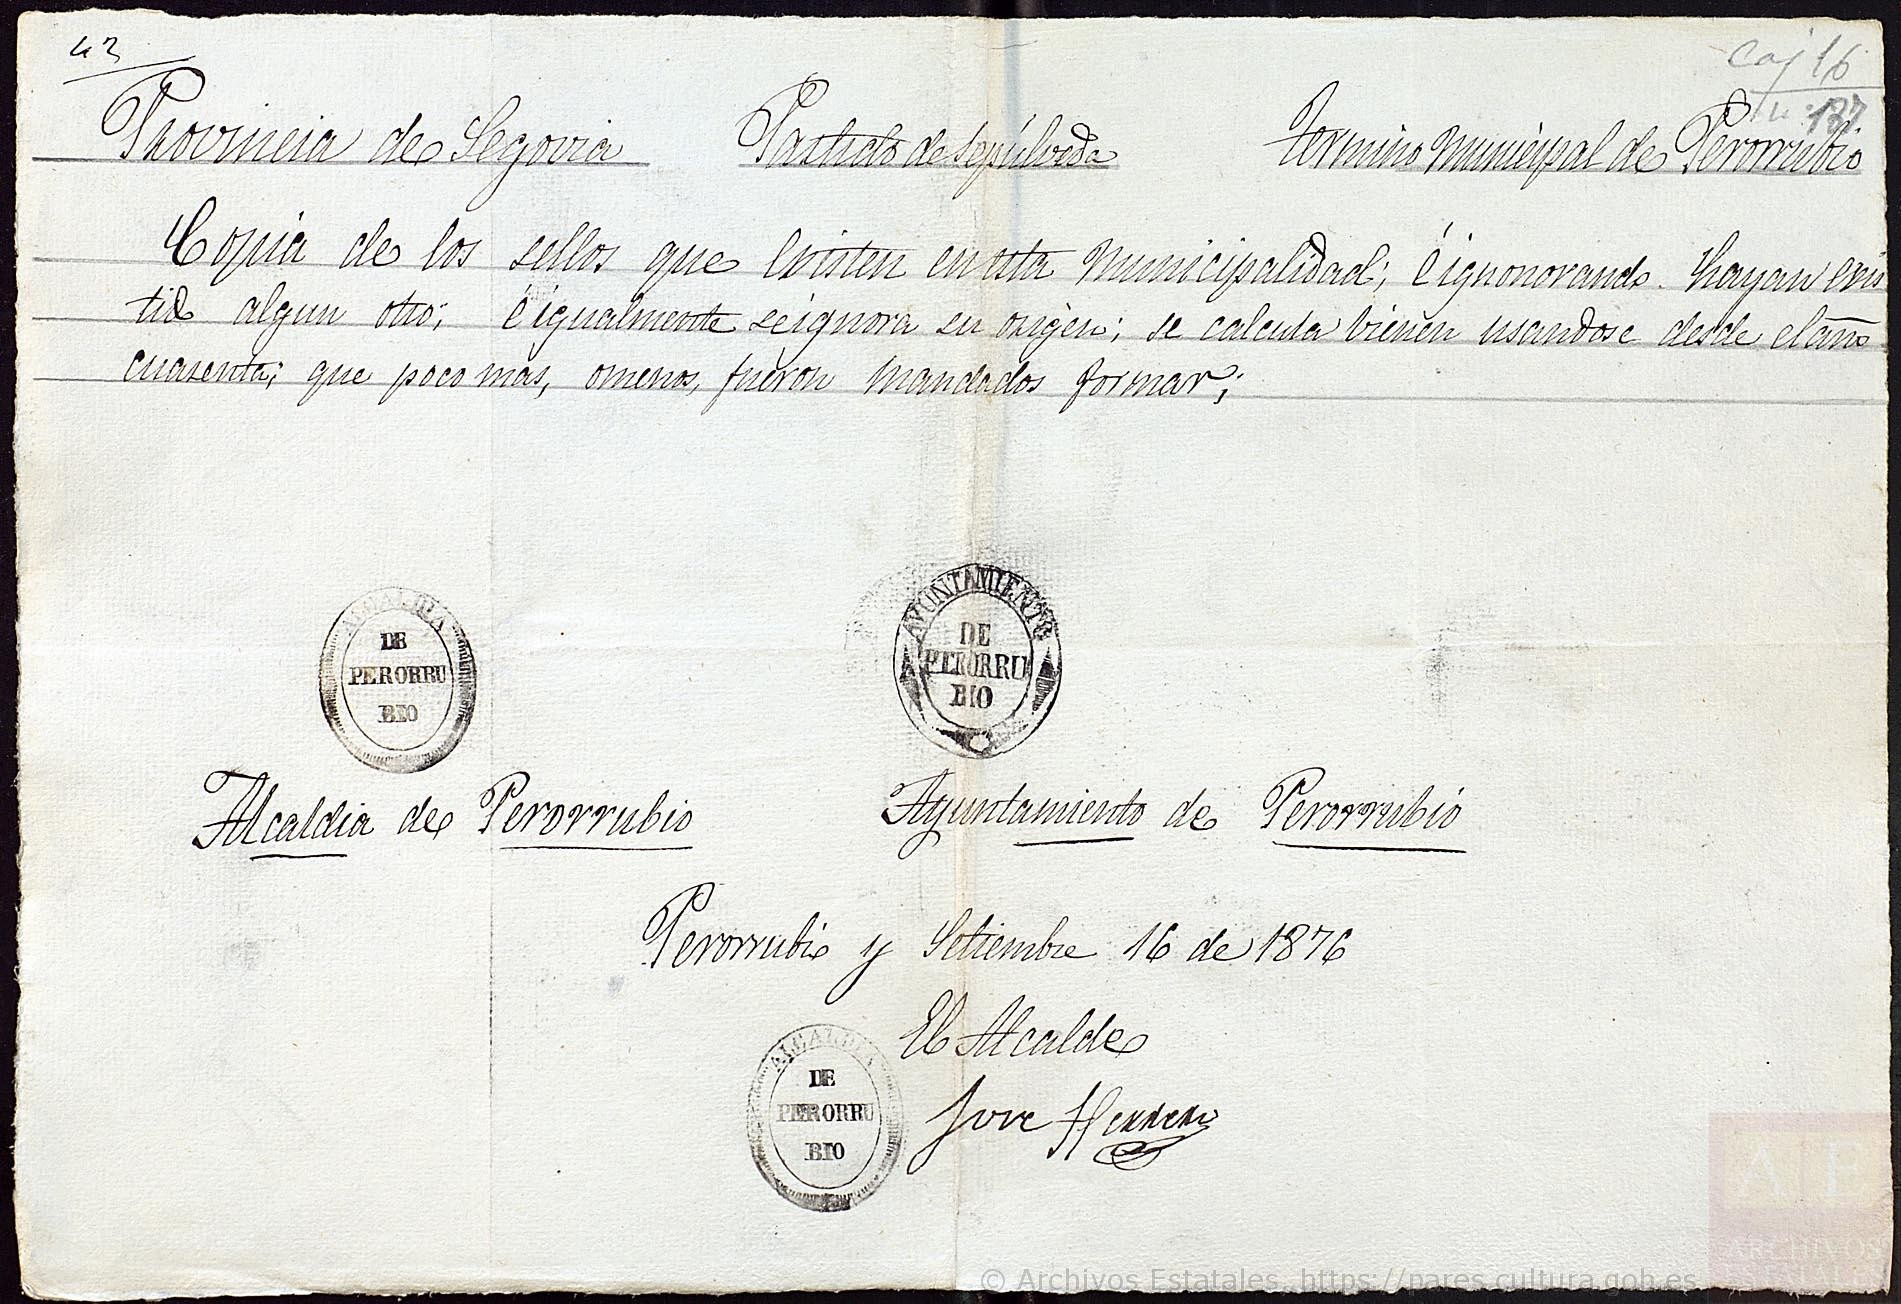 43
Caj 16
n. 137
Provincia de Segovia Partido de Sepúlveda Termino Municipal de Perorrubio
Copia de los sellos que Existen en esta Municipalidad; é ignonorando. hayan exis
tido algun otro; é igualmente se ignora su origen; se calcula vienen usandose desde el año
cuarenta; que poco mas, o menos, fuéron mandados formar;
ALCALDIA
DE
PERORRU
BIO
AYUNTAMIENTO
DE
PERORRU
BIO
Alcaldia de Perorrubio Ayuntamiento de Perorrubio
Perorrubio y Setiembre 16 de 1876
El Alcalde
Jose Herrero
ALCALDIA
DE
PERORRU
BIO
AE
ARCHIVOS
© Archivos Estatales, https://pares.cultura.gob.es